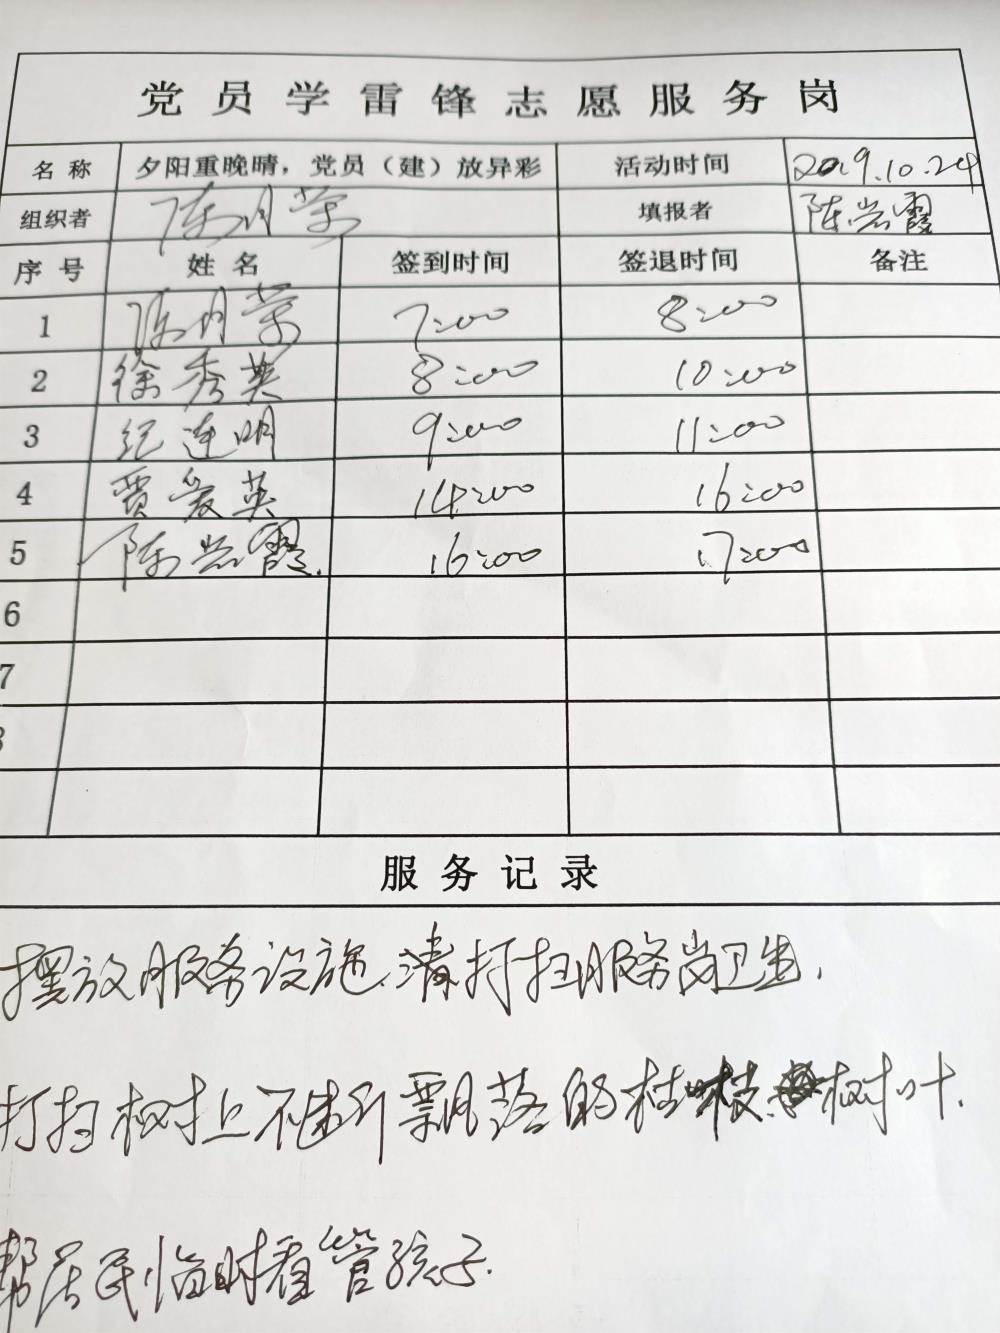 党员学雷锋志愿服务岗
名称 夕阳重晚晴，党员（建）放异彩 活动时间 2019.10.24
组织者 陈月荣 填报者 陈岩霞
序号 姓名 签到时间 签退时间 备注
1 陈月荣 7:00 8:00
2 徐秀英 8:00 10:00
3 纪连明 9:00 11:00
4 贾爱英 14:00 16:00
5 陈岩霞. 16:00 17:00
6
7
服务记录
摆放服务设施.清打扫服务岗卫生.
打扫树上不断飘落的枯枝.树叶.
帮居民临时看管孩子.